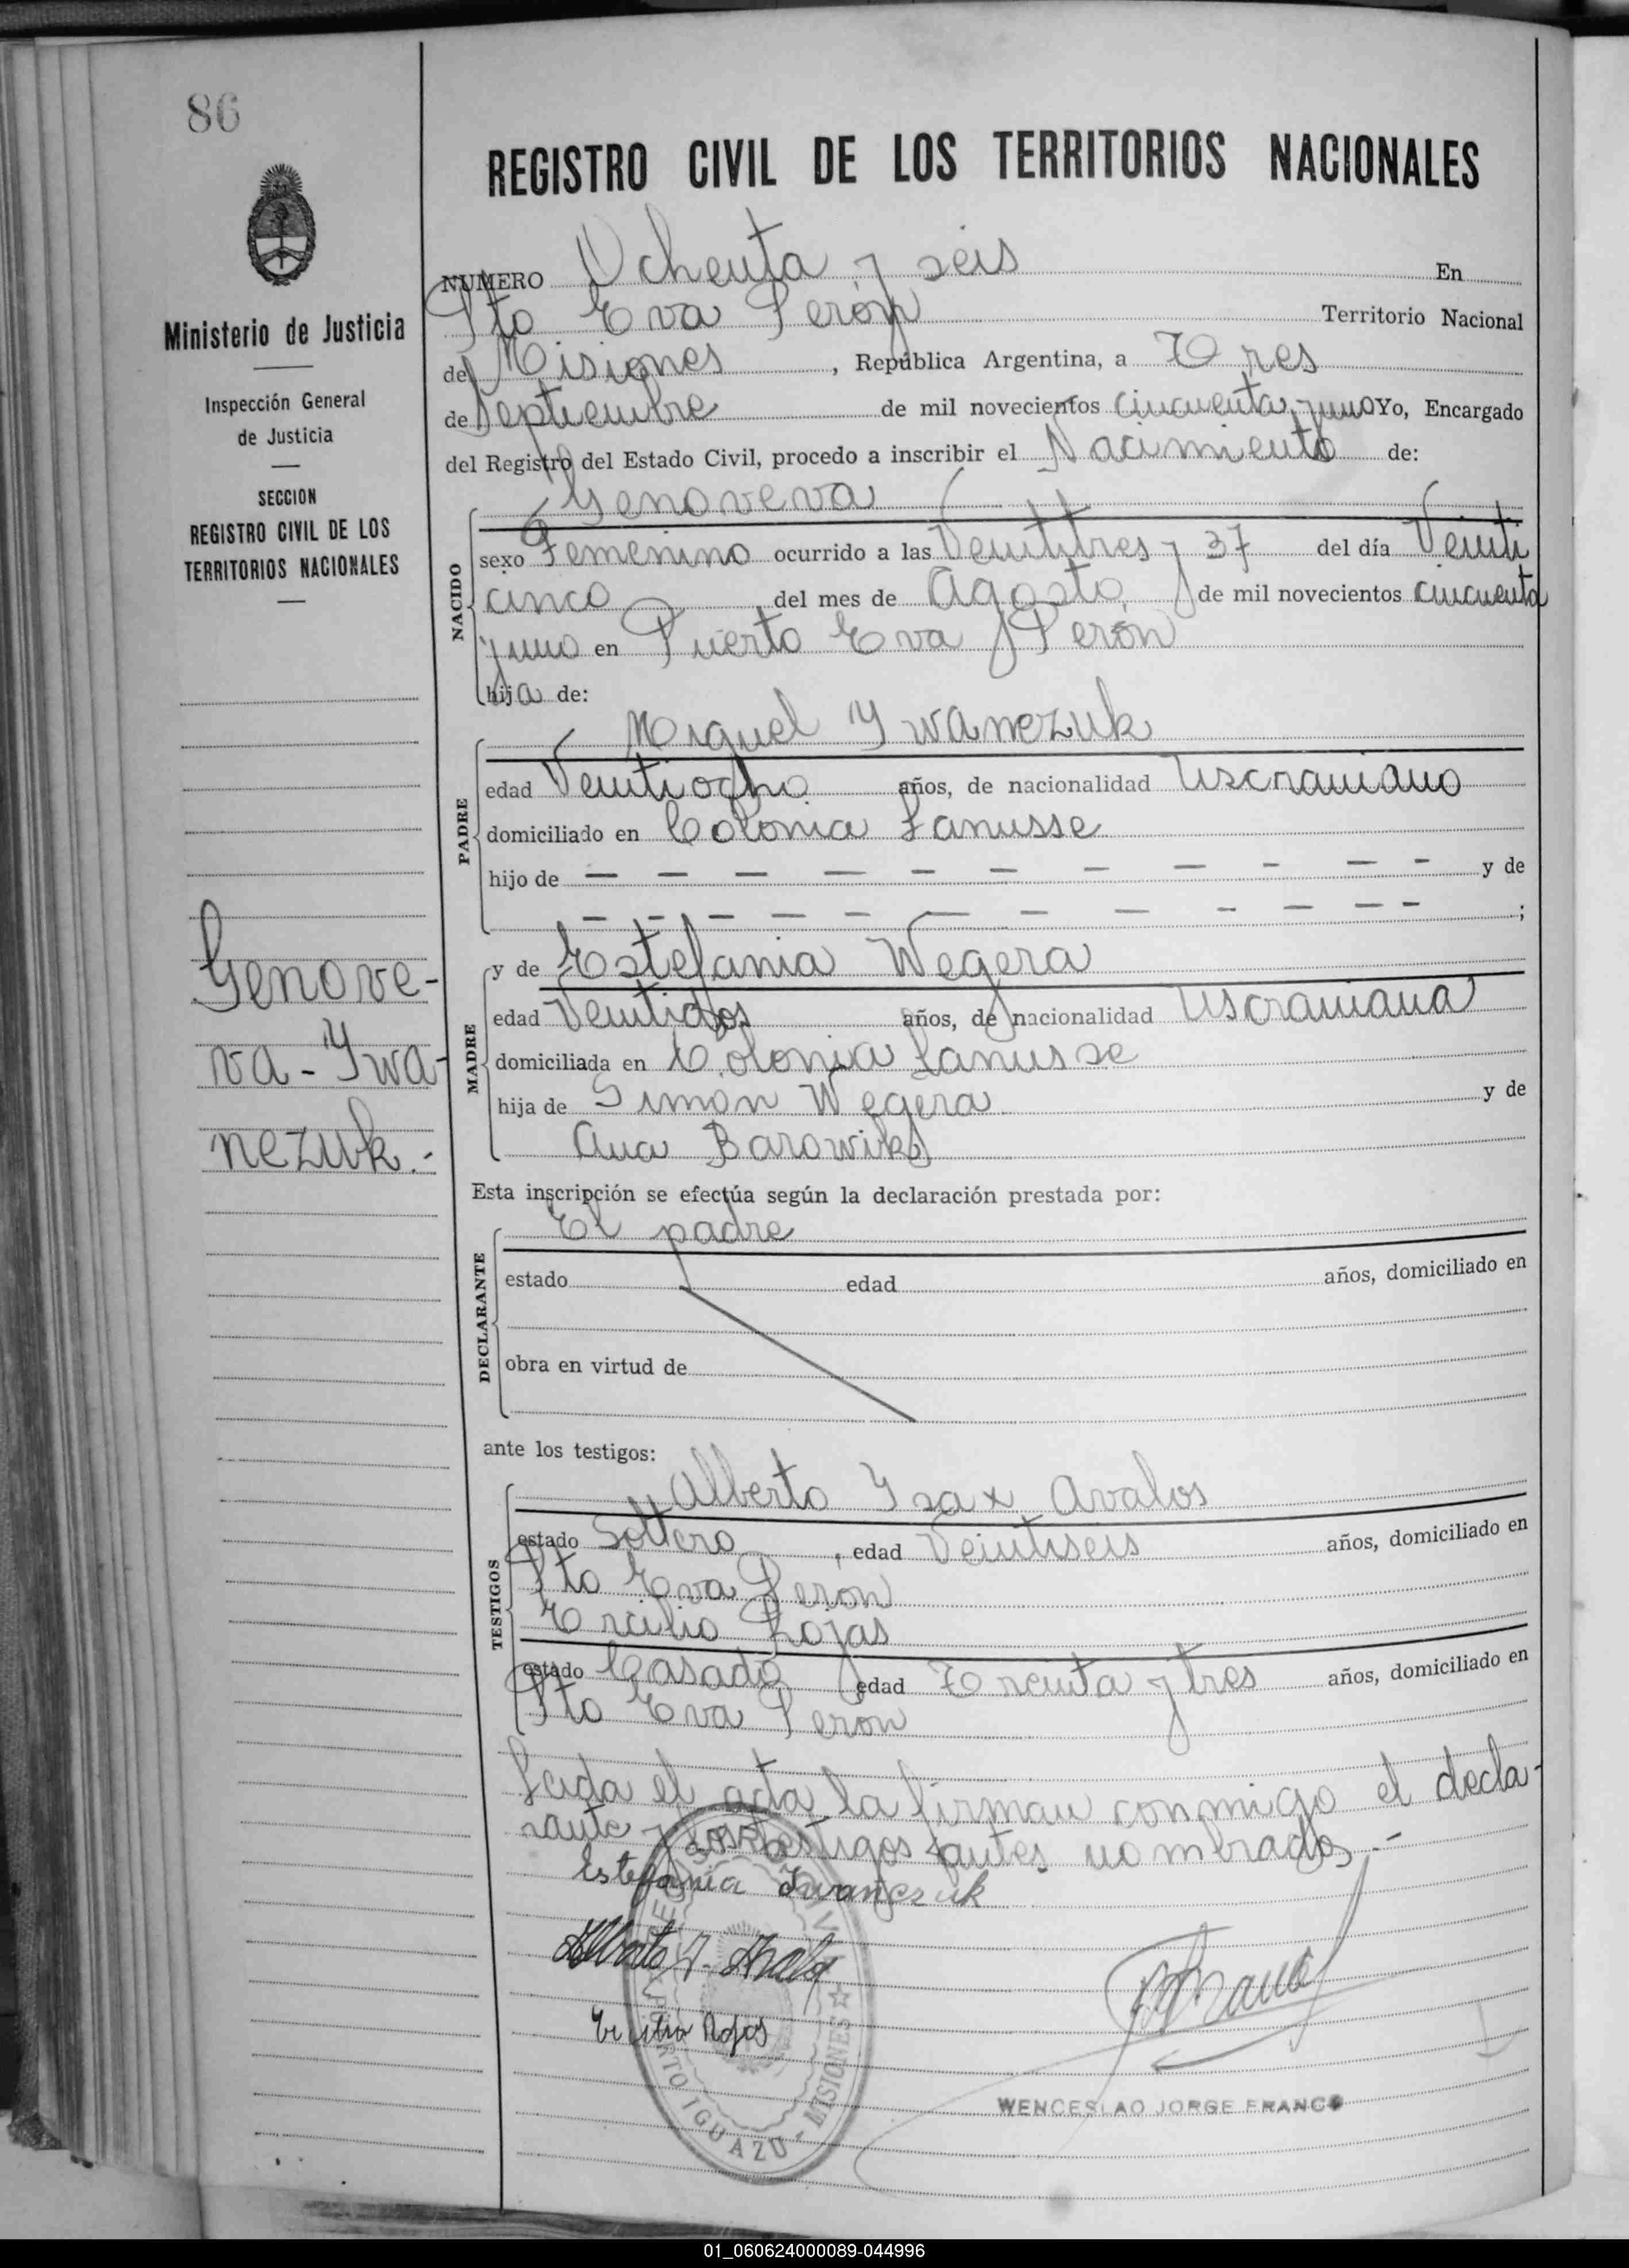 86
REGISTRO CIVIL DE LOS TERRITORIOS NACIONALES
NUMERO Ochenta y seis En
Pto Eva Perón Territorio Nacional
de Misiones, República Argentina, a Tres
de Septiembre de mil novecientos cincuenta y uno Yo, Encargado
del Registro del Estado Civil, procedo a inscribir el Nacimiento de:
Genoveva
sexo Femenino ocurrido a las Veintitres y 37 del día Veinti
cinco del mes de Agosto de mil novecientos cincuenta
y uno en Puerto Eva Perón
hija de:
NACIDO
Miguel Ywanezuk
edad Veintiocho años, de nacionalidad Uscraniano
domiciliado en Colonia Lanusse
hijo de — — — — — — — — — — — y de
— — — — — — — — — — — — ;
PADRE
y de Estefania Wegera
edad Veintidos años, de nacionalidad Uscraniana
domiciliada en Colonia Lanusse
hija de Simon Wegera y de
Ana
MADRE
Esta inscripción se efectúa según la declaración prestada por:
El padre
estado edad años, domiciliado en
obra en virtud de
DECLARANTE
ante los testigos:
Alberto Ysax Avalos
estado Soltero, edad Veintiseis años, domiciliado en
Pto Eva Perón
Ercilio Rojas
estado Casado edad Treinta y tres años, domiciliado en
Pto Eva Peron
TESTIGOS
Leida el acta, la firman conmigo el decla-
rante y los testigos antes nombrados.-
Estefania Iwanczuk
Alberto Y. Avalos
Ercilio Rojas
WENCESLAO JORGE FRANCO
PUERTO IGUAZU - MISIONES
Ministerio de Justicia
Inspección General
de Justicia
SECCION
REGISTRO CIVIL DE LOS
TERRITORIOS NACIONALES
Genove-
va - Ywa-
nezuk.-
01_060624000089-044996